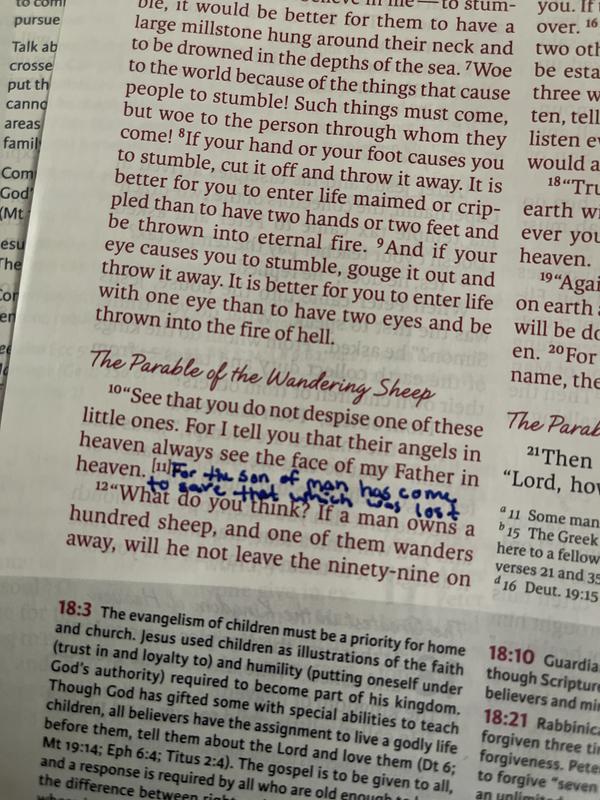 to com
pursue
Talk ab
crosse
put th
canno
areas
famil
Com
God'
(Mt
esu
The
ble, it would be better for them to have a
large millstone hung around their neck and
to be drowned in the depths of the sea. ⁷Woe
to the world because of the things that cause
people to stumble! Such things must come,
but woe to the person through whom they
come! ⁸If your hand or your foot causes you
to stumble, cut it off and throw it away. It is
better for you to enter life maimed or crip-
pled than to have two hands or two feet and
be thrown into eternal fire. ⁹And if your
eye causes you to stumble, gouge it out and
throw it away. It is better for you to enter life
with one eye than to have two eyes and be
thrown into the fire of hell.
The Parable of the Wandering Sheep
¹⁰“See that you do not despise one of these
little ones. For I tell you that their angels in
heaven always see the face of my Father in
heaven. [11] For the son of man has come
to save that which was lost
¹²“What do you think? If a man owns a
hundred sheep, and one of them wanders
away, will he not leave the ninety-nine on
you. If
over. ¹⁶
two oth
be esta
three w
ten, tell
listen ev
would a
¹⁸“Tru
earth wi
ever you
heaven.
¹⁹“Agai
on earth
will be do
en. ²⁰For
name, the
The Parab
²¹Then
“Lord, how
ᵃ 11 Some man
ᵇ 15 The Greek
here to a fellow
verses 21 and 35
ᵈ 16 Deut. 19:15
18:3 The evangelism of children must be a priority for home
and church. Jesus used children as illustrations of the faith
(trust in and loyalty to) and humility (putting oneself under
God's authority) required to become part of his kingdom.
Though God has gifted some with special abilities to teach
children, all believers have the assignment to live a godly life
before them, tell them about the Lord and love them (Dt 6;
Mt 19:14; Eph 6:4; Titus 2:4). The gospel is to be given to all,
and a response is required by all who are old enough to
the difference between
18:10 Guardia
though Scripture
believers and mi
18:21 Rabbinica
forgiven three tim
forgiveness. Pete
to forgive “seven
an unlimited